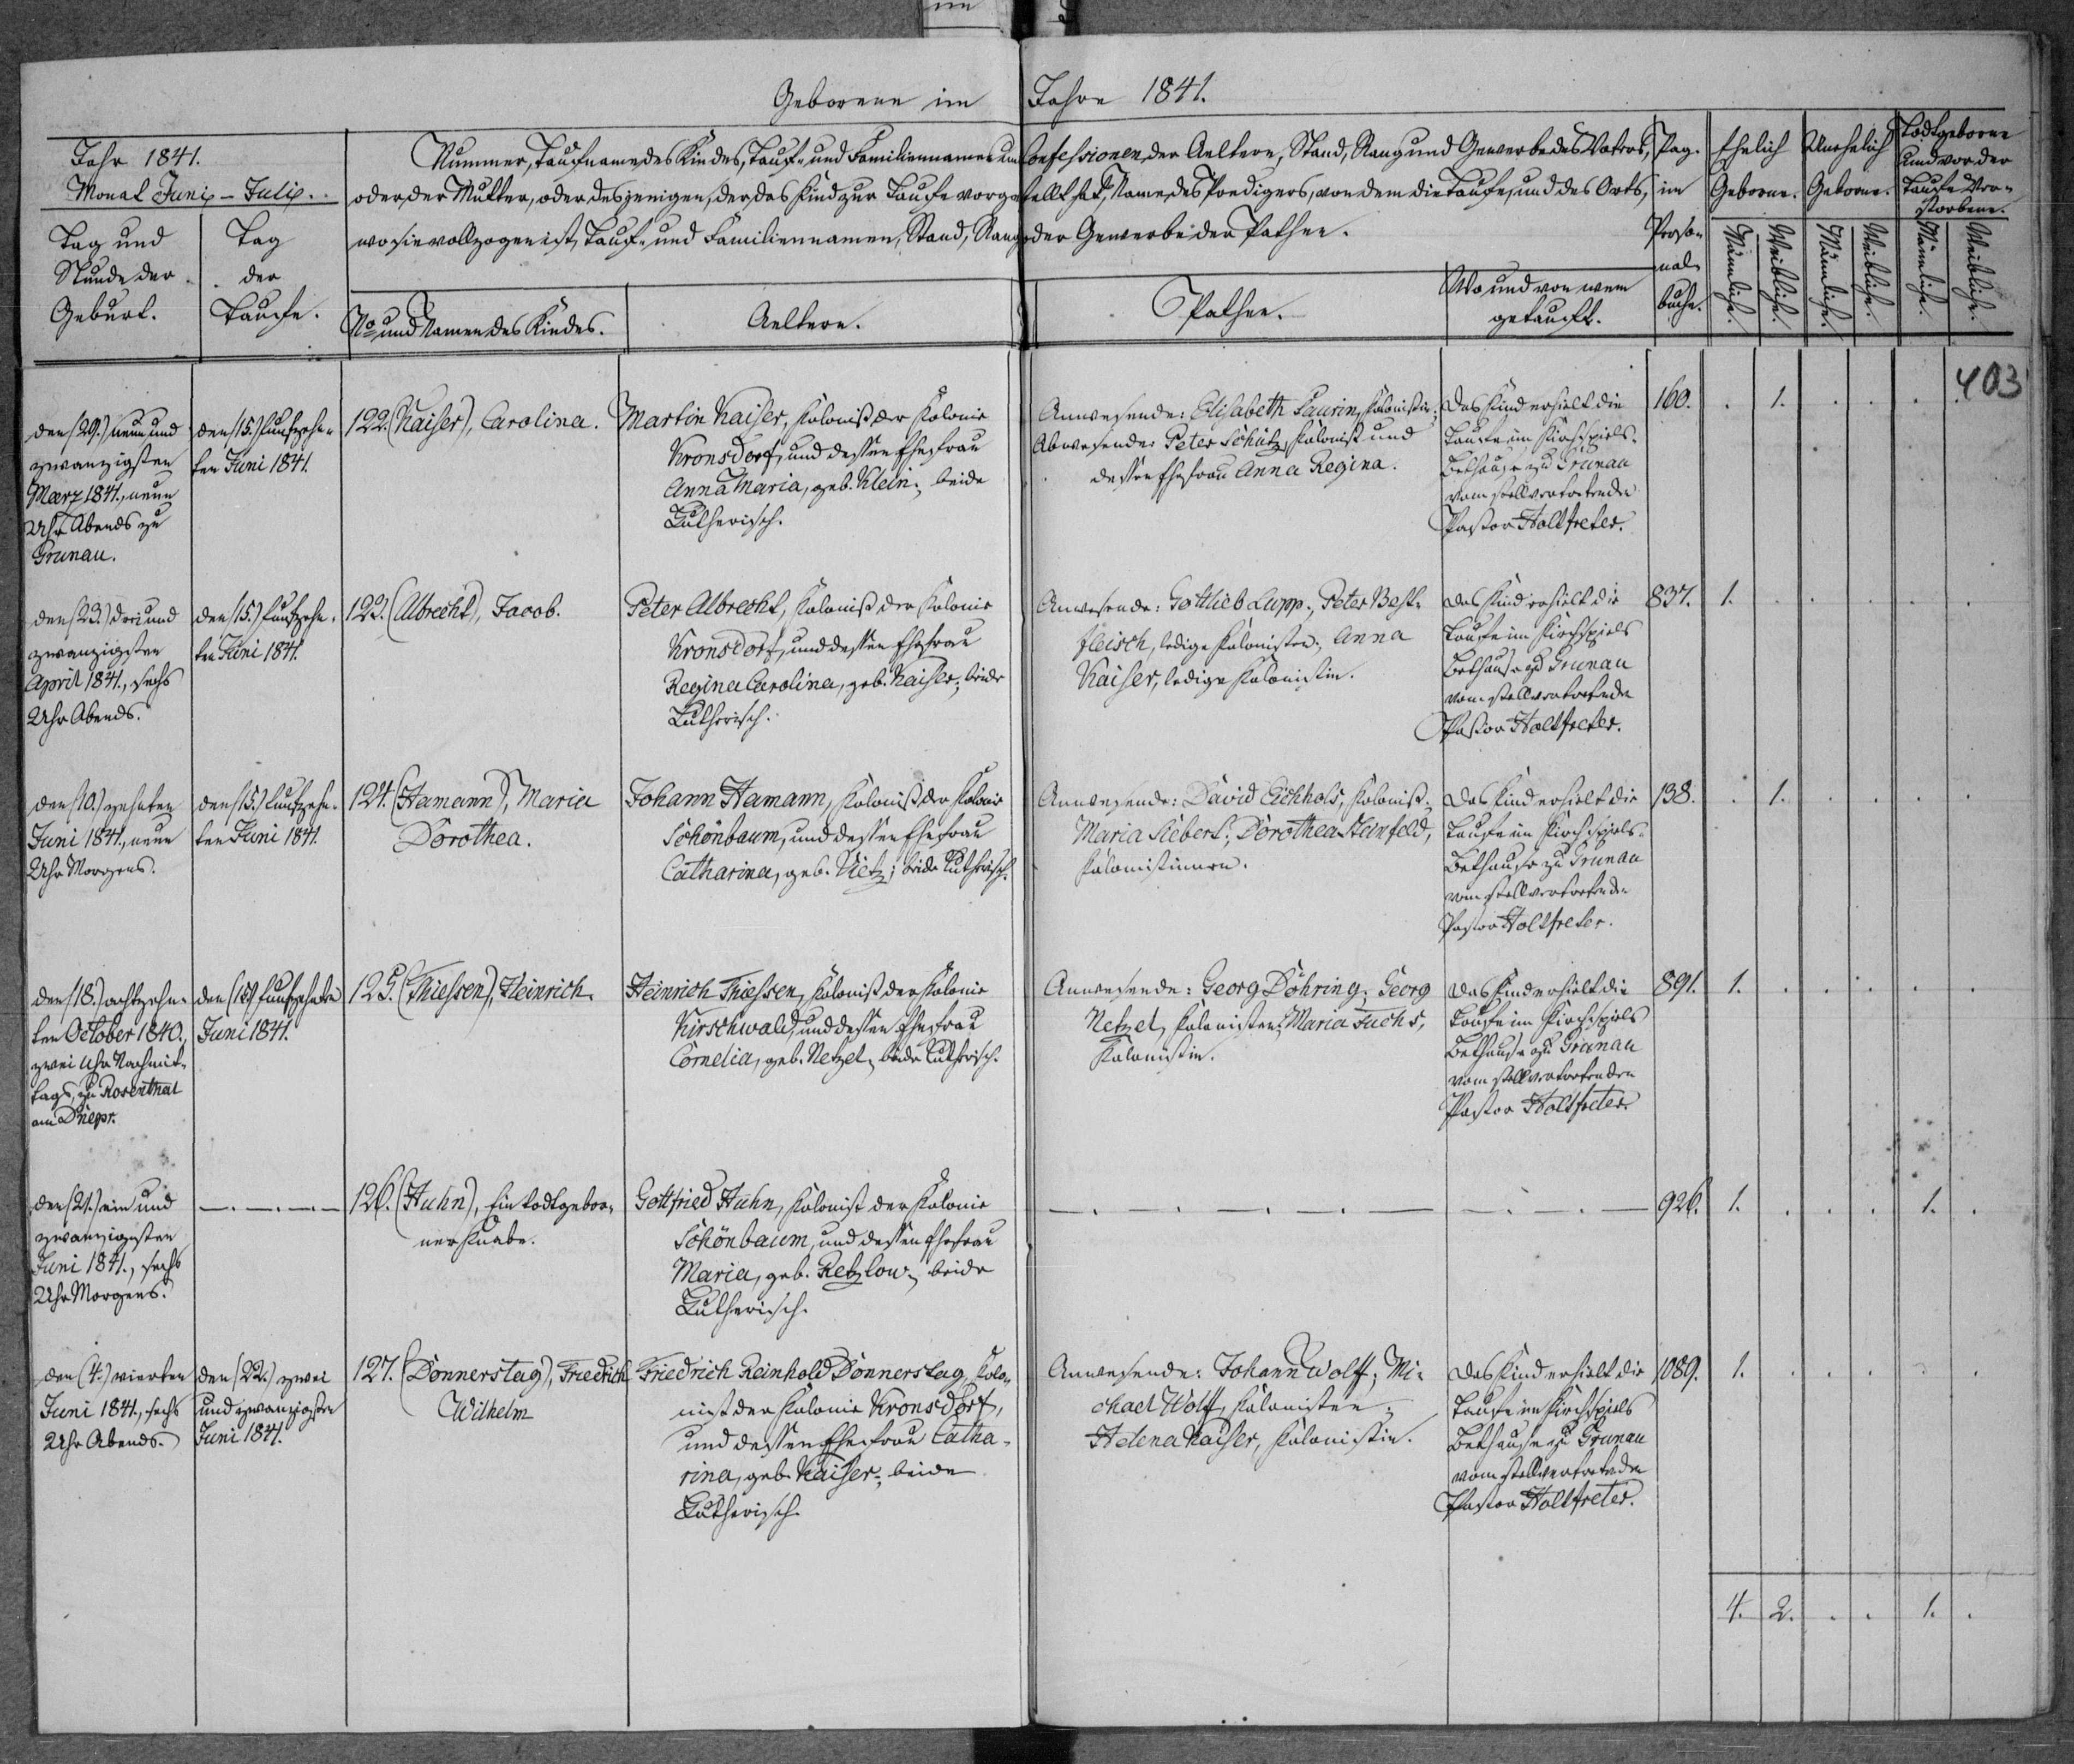 Geborene im Jahre 1841.
Jahr 1841.
Monat Junij - Julij.
Tag und
Stunde der
Geburt.
Tag
der
Taufe.
Nummer, Taufname des Kindes, Tauf- und Familiennamen und Confessionen der Aeltern, Stand, Rang und Gewerbe des Vaters,
oder der Mutter, oder desjenigen, der das Kind zur Taufe vorgestellt hat, Name des Predigers, von dem die Taufe, und des Orts,
wo sie vollzogen ist, Tauf- und Familiennamen, Stand, Rang oder Gewerbe der Pathen.
No und Namen des Kindes.
Aeltern.
Pathen.
Wo und von wem
getauft.
Pag.
im
Perso-
nal-
buche.
Ehelich
Geborne.
Unehelich
Geborne.
Todtgeborne
und vor der
Taufe Ver-
storbene.
Männliche.
Weibliche.
Männliche.
Weibliche.
Männliche.
Weibliche.
403
den (29.) neun und
zwanzigsten
Maerz 1841., neun
Uhr Abends zu
Grunau.
den (15.) fünfzehn-
ten Juni 1841.
122. (Kaiser), Carolina.
Martin Kaiser, Kolonist der Kolonie
Kronsdorf, und dessen Ehefrau
Anna Maria, geb. Klein; beide
Lutherisch.
Anwesende: Elisabeth Laurin, Kolonistin;
Abwesende: Peter Schütz, Kolonist und
dessen Ehefrau Anna Regina.
Das Kind erhielt die
Taufe im Kirchspiels-
Bethause zu Grunau
vom stellvertretenden
Pastor Holtfreter.
160. . 1. . . . .
den (23.) drei und
zwanzigsten
April 1841., sechs
Uhr Abends.
den (15.) fünfzehn-
ten Juni 1841.
123. (Albrecht), Jacob.
Peter Albrecht, Kolonist der Kolonie
Kronsdorf, und dessen Ehefrau
Regina Carolina, geb. Kaiser; beide
Lutherisch.
Anwesende: Gottlieb Lupp; Peter Best-
fleisch, ledige Kolonisten; Anna
Kaiser, ledige Kolonistin.
Das Kind erhielt die
Taufe im Kirchspiels
Bethause zu Grunau
vom stellvertretenden
Pastor Holtfreter.
837. 1. . . . . .
den (10.) zehnten
Juni 1841., neun
Uhr Morgens.
den (15.) fünfzehn-
ten Juni 1841.
124. (Hamann), Maria
Dorothea.
Johann Hamann, Kolonist der Kolonie
Schönbaum, und dessen Ehefrau
Catharina, geb. Vietz; beide Lutherisch.
Anwesende: David Eichholz, Kolonist;
Maria Siebert; Dorothea Steinfeld,
Kolonistinnen.
Das Kind erhielt die
Taufe im Kirchspiels-
Bethause zu Grunau
vom stellvertretenden
Pastor Holtfreter.
138. . 1. . . . .
den (18.) achtzehn-
ten October 1840.,
zwei Uhr Nachmit-
tags, zu Rosenthal
am Dnepr.
den (15.) fünfzehnten
Juni 1841.
125. (Thiessen), Heinrich.
Heinrich Thiessen, Kolonist der Kolonie
Kirschwald, und dessen Ehefrau
Cornelia, geb. Netzel; beide Lutherisch.
Anwesende: Georg Döhring; Georg
Netzel, Kolonisten; Maria Fuchs,
Kolonistin.
Das Kind erhielt die
Taufe im Kirchspiels
Bethause zu Grunau
vom stellvertretenden
Pastor Holtfreter.
891. 1. . . . . .
den (21.) ein und
zwanzigsten
Juni 1841., sechs
Uhr Morgens.
126. (Huhn), Ein todtgebor-
ner Knabe.
Gottfried Huhn, Kolonist der Kolonie
Schönbaum, und dessen Ehefrau
Maria, geb. Retzlow; beide
Lutherisch.
926. 1. . . . 1. .
den (4.) vierten
Juni 1841., sechs
Uhr Abends.
den (22.) zwei
und zwanzigsten
Juni 1841.
127. (Donnerstag), Friedrich
Wilhelm
Friedrich Reinhold Donnerstag, Kolo-
nist der Kolonie Kronsdorf,
und dessen Ehefrau Catha-
rina, geb. Kaiser; beide
Lutherisch.
Anwesende: Johann Wolff; Mi-
chael Wolff, Kolonisten;
Helena Kaiser, Kolonistin.
Das Kind erhielt die
Taufe im Kirchspiels
Bethause zu Grunau
vom stellvertretenden
Pastor Holtfreter.
1089. 1. . . . . .
4. 2. . . 1. .